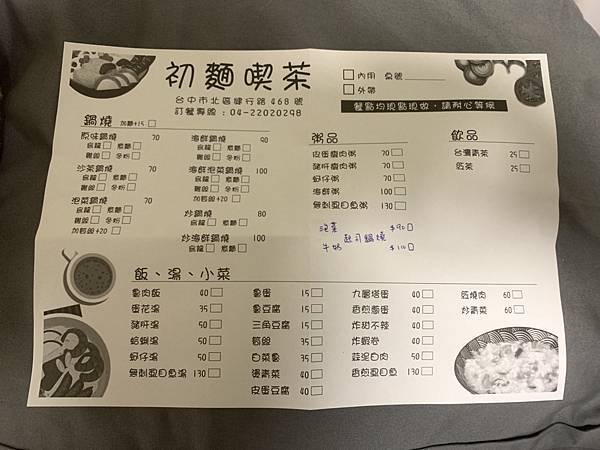 初麵喫茶
台中市北區健行路468號
訂餐專線：04-22020298
□內用 桌號
□外帶
餐點均現點現做，請耐心等候
鍋燒 加麵+15□
原味鍋燒 70
烏龍□ 意麵□
雞絲□ 冬粉□
沙茶鍋燒 70
烏龍□ 意麵□
雞絲□ 冬粉□
泡菜鍋燒 70
烏龍□ 意麵□
雞絲□ 冬粉□
海鮮鍋燒 90
烏龍□ 意麵□
雞絲□ 冬粉□
海鮮泡菜鍋燒 100
烏龍□ 意麵□
雞絲□ 冬粉□
加豆腐+20□
炒鍋燒 80
烏龍□ 意麵□
炒海鮮鍋燒 100
烏龍□ 意麵□
粥品
皮蛋瘦肉粥 70□
豬肝瘦肉粥 70□
蚵仔粥 70□
海鮮粥 100□
無刺虱目魚粥 130□
泡菜 $90□
起司鍋燒
牛奶 $110□
飲品
台灣青茶 25□
紅茶 25□
飯、湯、小菜
魯肉飯 40□
蛋花湯 35□
豬肝湯 50□
蛤蜊湯 50□
蚵仔湯 50□
無刺虱目魚湯 130□
魯蛋 15□
魯豆腐 15□
三角豆腐 15□
豆腐 35□
白菜魯 35□
燙青菜 40□
皮蛋豆腐 40□
九層塔蛋 40□
香煎蔥蛋 40□
炸甜不辣 40□
炸蝦卷 40□
蒜泥白肉 50□
香煎虱目魚 130□
紅燒肉 60□
炒青菜 60□